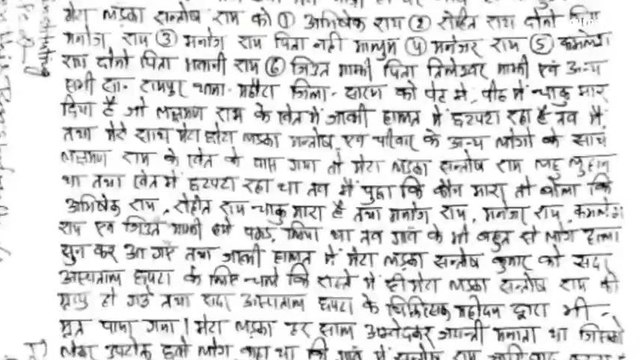 मेरा लड़का सन्तोष राम को ① अभिषेक राम ② रोहित राम दोनों पिता
मनोज राम ③ मनोज राम पिता नही मालुम ④ मनेजर राम ⑤ कमलेश
राम दोनो पिता भवानी राम ⑥ जितु माझी पिता मिलेश्वर माझी एवं अन्य
सभी सा॰- रामपुर थाना- मढौरा जिला- सारण को पेट मे, पीठ में चाकु मार
दिया है जो लक्षमण राम के खेत में जख्मी हालत में छटपटा रहा है तब मैं
तथा मेरे साथ मेरा छोटा लड़का मन्तोष एवं परिवार के अन्य लोगो के साथ
लक्षमण राम के खेत के पास गया तो मेरा लड़का सन्तोष राम लहु लुहान
था तथा खेत में छटपटा रहा था तब मैं पुछा कि कौन मारा तो बोला कि
अभिषेक राम, रोहित राम चाकु मारा है तथा मनोज राम, मनेजर राम, कमलेश
राम एवं जितु माझी पकड़ लिया था तब गांव के भी बहुत से लोग हल्ला
सुन कर आ गए तथा जख्मी हालत में मेरा लड़का सन्तोष कुमार को सदर
अस्पताल छपरा के लिए चले कि रास्ते में ही मेरा लड़का सन्तोष राम की
मृत्यु हो गई तथा सदर अस्पताल छपरा के चिकित्सक महोदय द्वारा भी
मृत पाया गया। मेरा लड़का हर साल अम्बेदकर जयन्ती मनाता था जिसको
लेकर उपरोक्त सभी लोग कहा था कि गांव में सन्तोष राम